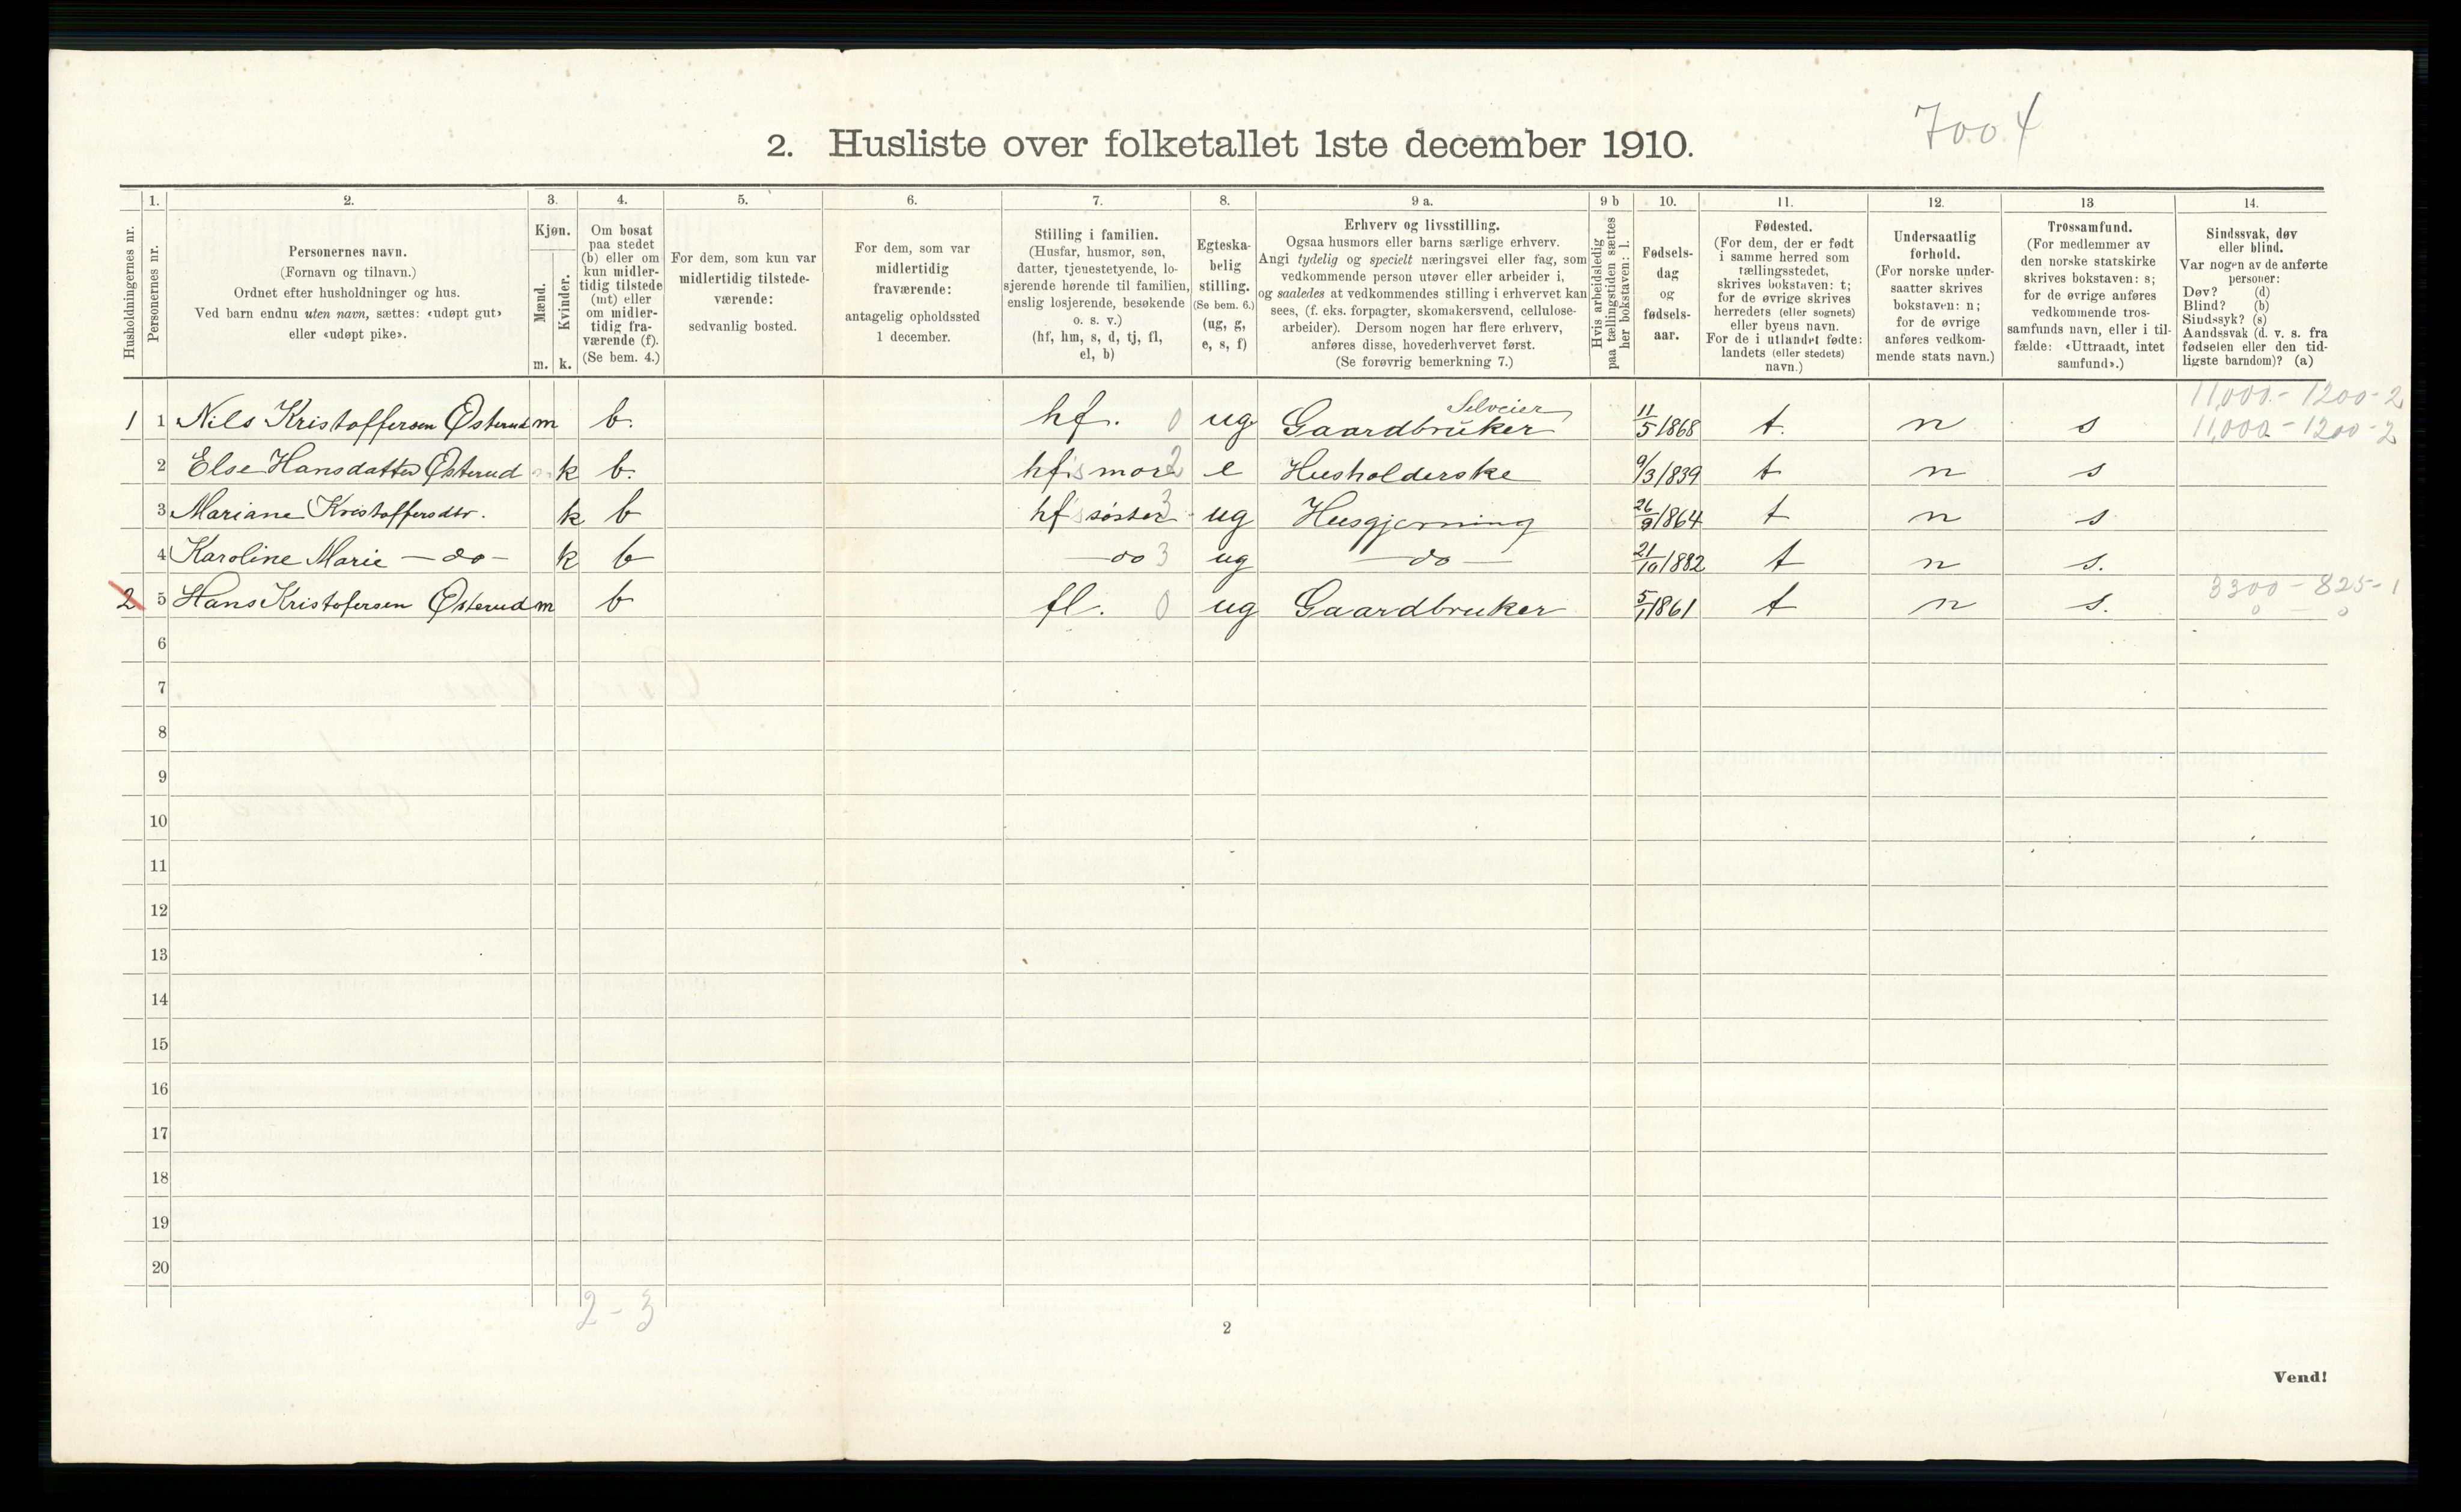 7004
2. Husliste over folketallet 1ste december 1910.
Husholdningernes nr.
1.
Personernes nr.
2.
Personernes navn.
(Fornavn og tilnavn.)
Ordnet efter husholdninger og hus.
Ved barn endnu uten navn, sættes: «udøpt gut»
eller «udøpt pike».
3.
Kjøn.
Mænd.
Kvinder.
m. k.
4.
Om bosat
paa stedet
(b) eller om
kun midler-
tidig tilstede
(mt) eller
om midler-
tidig fra-
værende (f).
(Se bem. 4.)
5.
For dem, som kun var
midlertidig tilstede-
værende:
sedvanlig bosted.
6.
For dem, som var
midlertidig
fraværende:
antagelig opholdssted
1 december.
7.
Stilling i familien.
(Husfar, husmor, søn,
datter, tjenestetyende, lo-
sjerende hørende til familien,
enslig losjerende, besøkende
o. s. v.)
(hf, hm, s, d, tj, fl,
el, b)
8.
Egteska-
belig
stilling.
(Se bem. 6.)
(ug, g,
e, s, f)
9 a.
Erhverv og livsstilling.
Ogsaa husmors eller barns særlige erhverv.
Angi tydelig og specielt næringsvei eller fag, som
vedkommende person utøver eller arbeider i,
og saaledes at vedkommendes stilling i erhvervet kan
sees, (f. eks. forpagter, skomakersvend, cellulose-
arbeider). Dersom nogen har flere erhverv,
anføres disse, hovederhvervet først.
(Se forøvrig bemerkning 7.)
9 b
Hvis arbeidsledig
paa tællingstiden sættes
her bokstaven: l.
10.
Fødsels-
dag
og
fødsels-
aar.
11.
Fødested.
(For dem, der er født
i samme herred som
tællingsstedet,
skrives bokstaven: t;
for de øvrige skrives
herredets (eller sognets)
eller byens navn.
For de i utlandet fødte:
landets (eller stedets)
navn.)
12.
Undersaatlig
forhold.
(For norske under-
saatter skrives
bokstaven: n;
for de øvrige
anføres vedkom-
mende stats navn.)
13
Trossamfund.
(For medlemmer av
den norske statskirke
skrives bokstaven: s;
for de øvrige anføres
vedkommende tros-
samfunds navn, eller i til-
fælde: «Uttraadt, intet
samfund».)
14.
Sindssvak, døv
eller blind.
Var nogen av de anførte
personer:
Døv? (d)
Blind? (b)
Sindssyk? (s)
Aandssvak (d. v. s. fra
fødselen eller den tid-
ligste barndom)? (a)
11,000 - 1200 - 2
Selveier
1 1 Nils Kristoffersen Østerud m b. hf. 0 ug Gaardbruker 11/5 1868 t. n s 11,000 - 1200 - 2
2 Else Hansdatter Østerud k b. hf.s mor 2 e Husholderske 9/3 1839 t n s
3 Mariane Kristoffersdtr. k b hf s søster 3 ug Husgjerning 26/9 1864 t n s
4 Karoline Marie — do — k b — do 3 ug — do — 21/10 1882 t n s.
2 5 Hans Kristofersen Østerud m b fl. 0 ug Gaardbruker 5/1 1861 t n s. 3300 - 825 - 1
0 — 0
6
7
8
9
10
11
12
13
14
15
16
17
18
19
20
2 - 3
2
Vend!